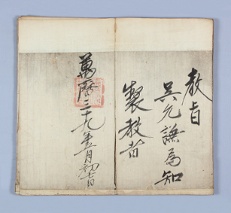 教旨
吳允謙爲知
製教者
萬曆三十九年五月初七日